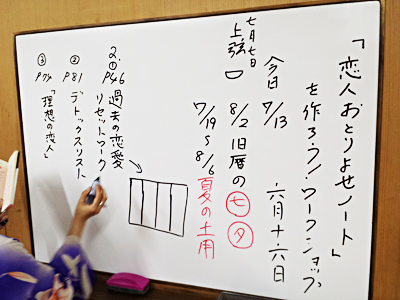 「恋人おとりよせノート」
を作ろう！ワークショップ
今日 7/13 六月十六日
七月七日
上弦
8/2 旧暦の七夕
7/19〜8/6 夏の土用
2.
① P46 過去の恋愛
リセットワーク
② P81 デトックスリスト
③ P74 「理想の恋人」